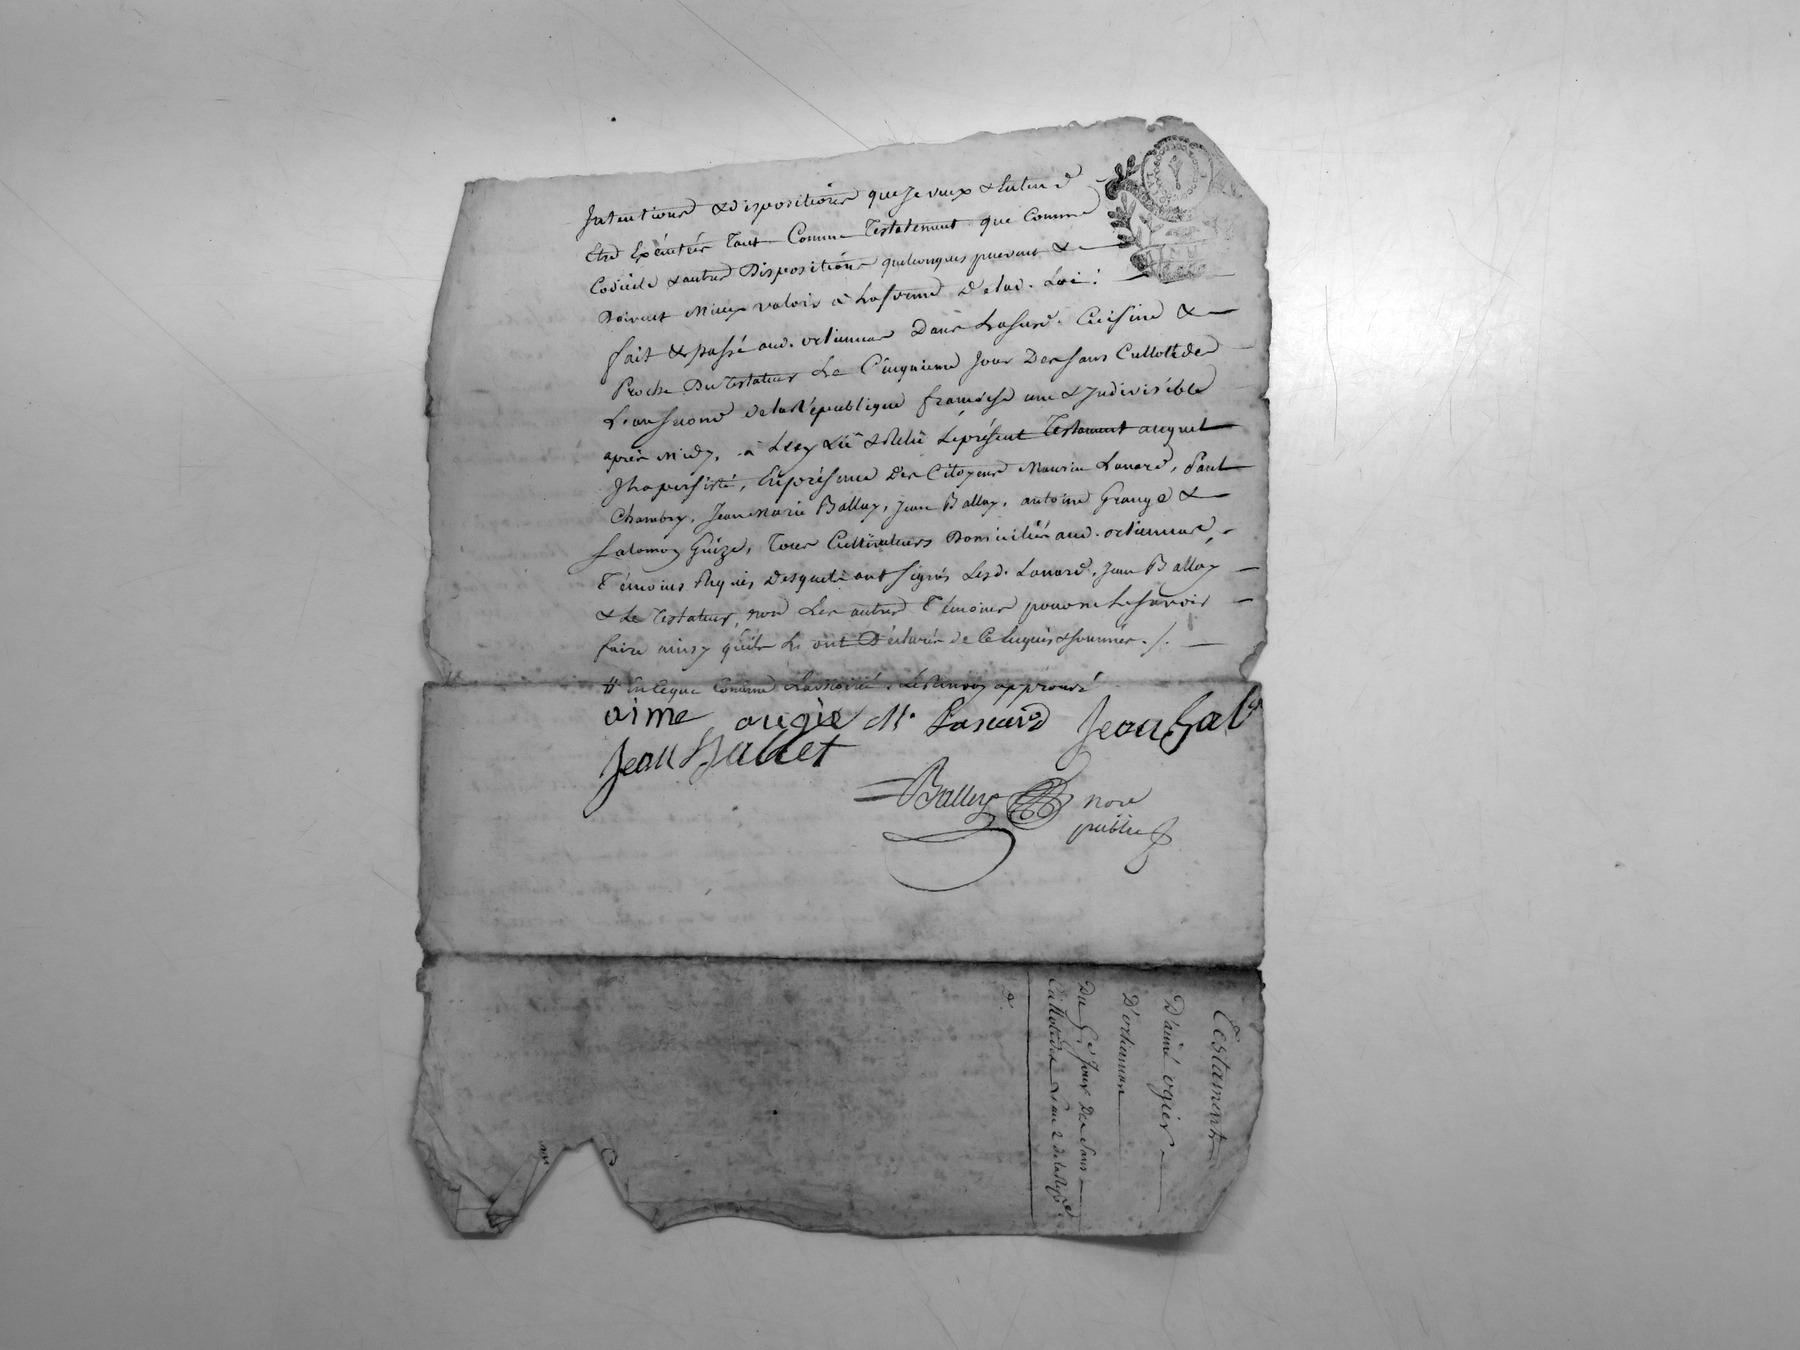 Intentions & dispositions que Je veux & Entend
Etre Exécutées Tant Comme Testatement que Comme
Codicile & autres Dispositions quelconques pouvant &
Doivent Mieux valoir à La forme De lad. Loi:
fait & passé aud. ortiennas Dans La Cuisine &
Proche Du testateur Le Cinquieme Jour Des sans Cullotides
L'an second de la République francoise une & Indivisible
après Midy, à Luy Lü & Relü Le présent Testament auquel
Il a persisté, En présence Des Citoyens Maurice Lanard, Paul
Chambry, Jean Marie Ballay, Jean Ballay, antoine Grange &
Salomon Guize, Tous Cultivateurs Domiciliés aud. ortiennas,
Témoins Requis, Desquels ont signés Lesd. Lanard, Jean Ballay
& Le Testateur, non Les autres Témoins pour ne Le savoir
faire ainsy qu'ils Le ont Déclarés de Ce Enquis & sommés ./.
# En Ce que Comme Renvoy approuvé
aimé ougie M. Lanard Jean Bal
Jean Ballet
Ballay nore
public
Testament
D'aimé ogier
D'ortiennas
Du 5e Jour Des Sans
Cullotides L'an 2 de la Repe